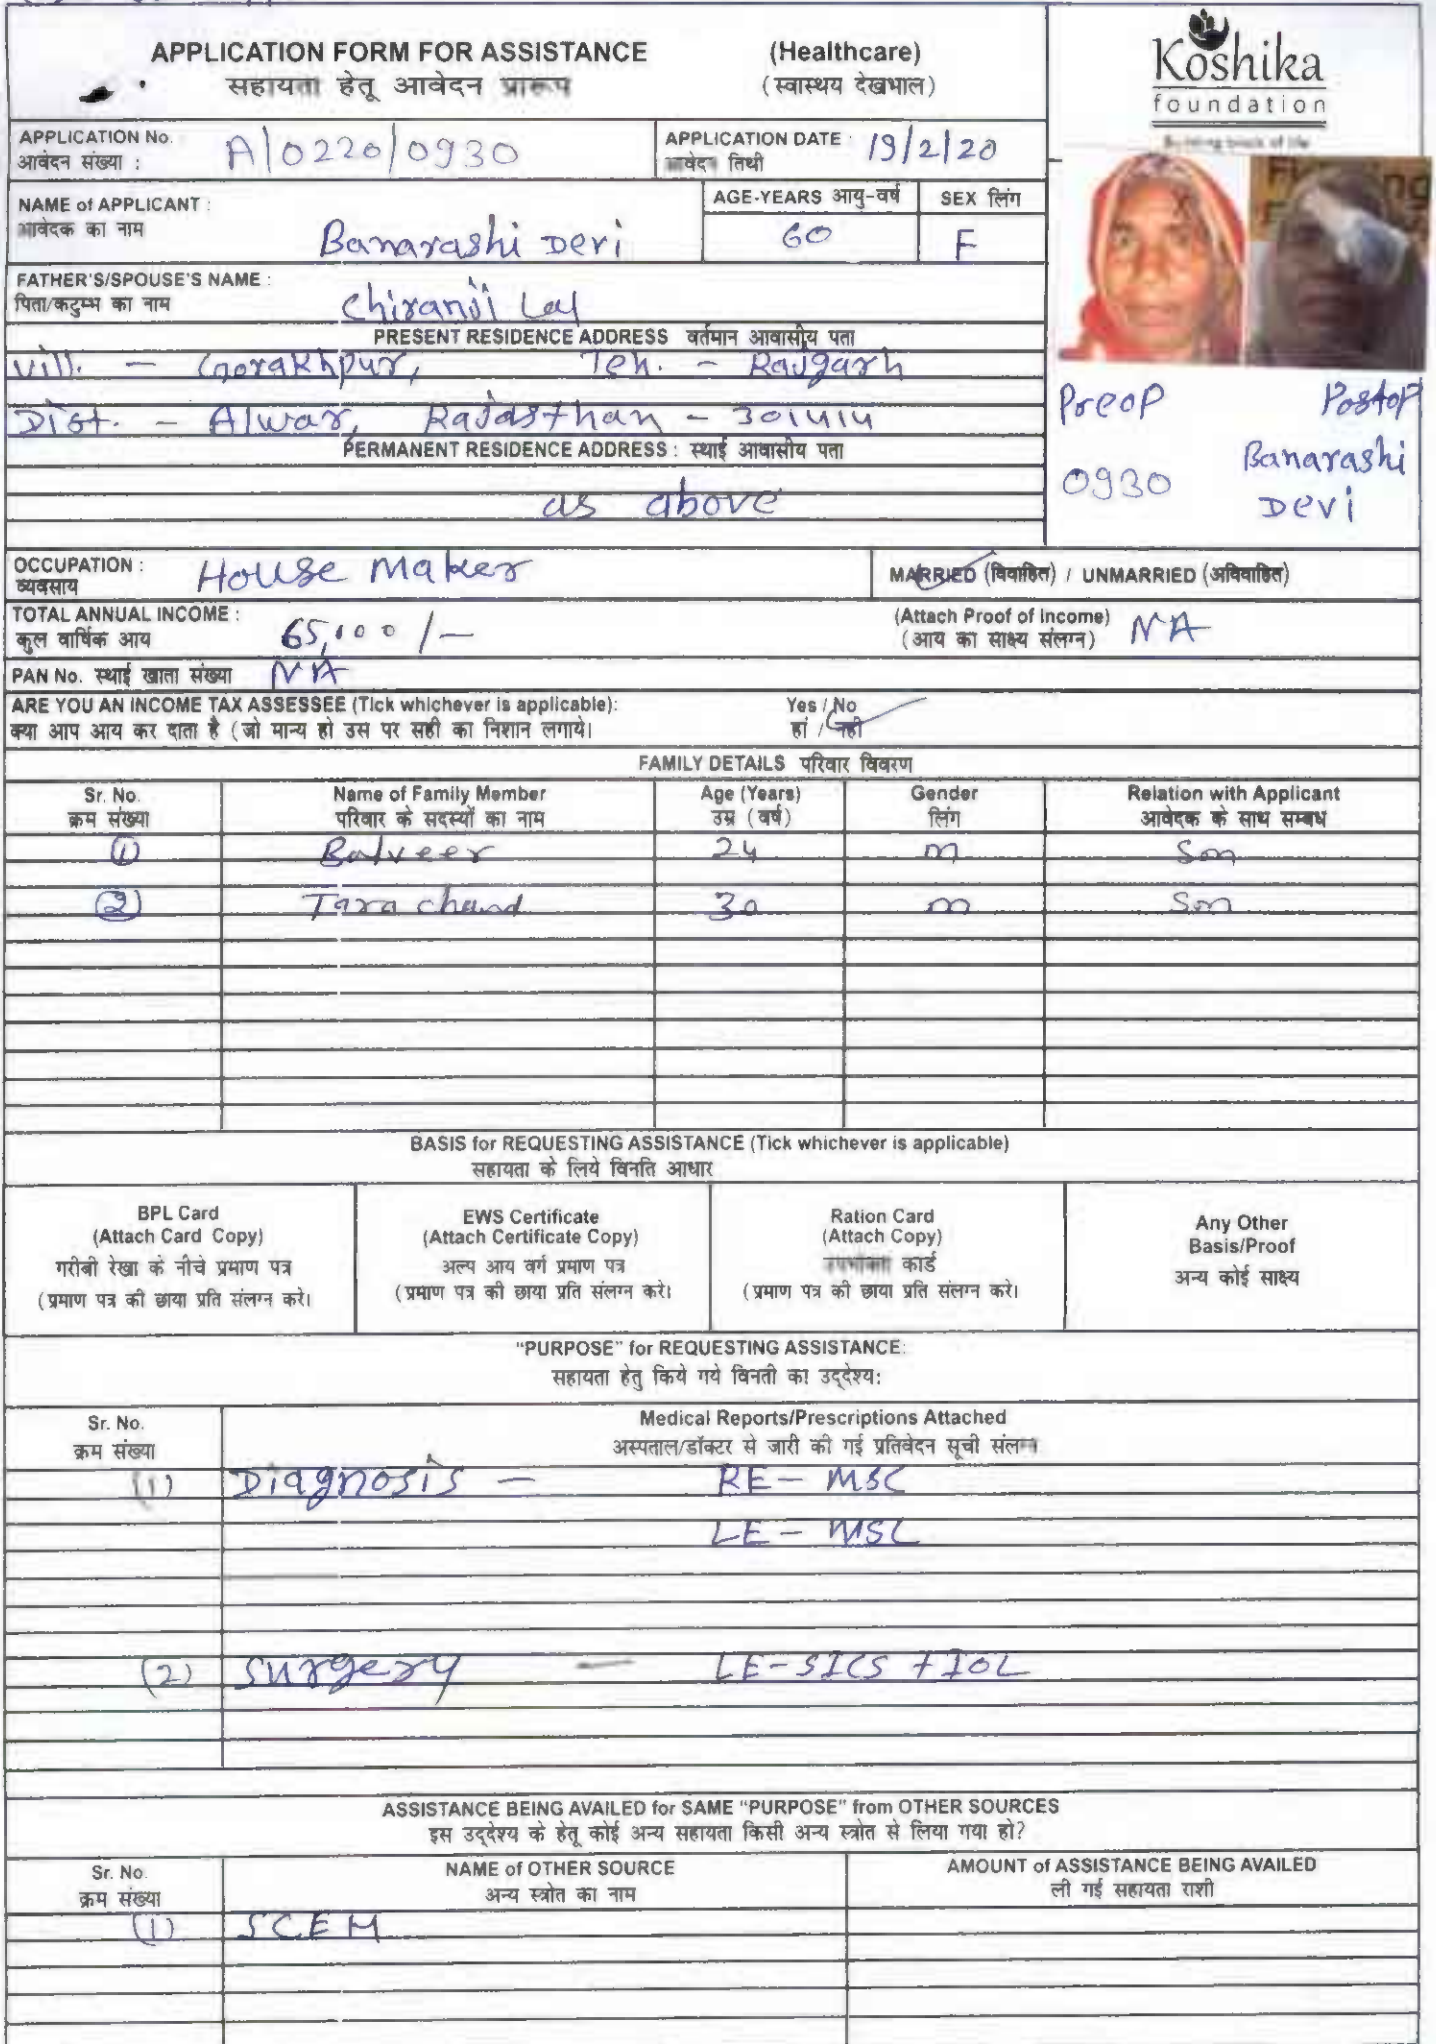 APPLICATION FORM FOR ASSISTANCE (Healthcare)
सहायता हेतू आवेदन प्रारूप (स्वास्थय देखभाल)
Koshika
foundation
APPLICATION No.
आवेदन संख्या : A/0220/0930
APPLICATION DATE : 19/2/20
आवेदन तिथी
NAME of APPLICANT :
आवेदक का नाम Banarashi Devi
AGE-YEARS आयु-वर्ष 60
SEX लिंग F
FATHER'S/SPOUSE'S NAME :
पिता/कटुम्भ का नाम Chiranji Lal
PRESENT RESIDENCE ADDRESS वर्तमान आवासीय पता
Vill. - Gorakhpur, Teh. - Rajgarh
Dist. - Alwar, Rajasthan - 301414
PERMANENT RESIDENCE ADDRESS : स्थाई आवासीय पता
as above
Preop Postop
0930 Banarashi
Devi
OCCUPATION :
व्यवसाय House Maker
MARRIED (विवाहित) / UNMARRIED (अविवाहित)
TOTAL ANNUAL INCOME :
कुल वार्षिक आय 65,000/-
(Attach Proof of Income)
(आय का साक्ष्य संलग्न) NA
PAN No. स्थाई खाता संख्या NA
ARE YOU AN INCOME TAX ASSESSEE (Tick whichever is applicable): Yes / No
क्या आप आय कर दाता है (जो मान्य हो उस पर सही का निशान लगाये। हां / नही
FAMILY DETAILS परिवार विवरण
Sr. No. Name of Family Member Age (Years) Gender Relation with Applicant
क्रम संख्या परिवार के सदस्यों का नाम उम्र (वर्ष) लिंग आवेदक के साथ सम्बंध
(1) Balveer 24 m Son
(2) Tara chand 30 m Son
BASIS for REQUESTING ASSISTANCE (Tick whichever is applicable)
सहायता के लिये विनति आधार
BPL Card
(Attach Card Copy)
गरीबी रेखा के नीचे प्रमाण पत्र
(प्रमाण पत्र की छाया प्रति संलग्न करे।
EWS Certificate
(Attach Certificate Copy)
अल्प आय वर्ग प्रमाण पत्र
(प्रमाण पत्र की छाया प्रति संलग्न करे।
Ration Card
(Attach Copy)
उपभोक्ता कार्ड
(प्रमाण पत्र की छाया प्रति संलग्न करे।
Any Other
Basis/Proof
अन्य कोई साक्ष्य
"PURPOSE" for REQUESTING ASSISTANCE:
सहायता हेतु किये गये विनती का उद्देश्य:
Sr. No. Medical Reports/Prescriptions Attached
क्रम संख्या अस्पताल/डॉक्टर से जारी की गई प्रतिवेदन सूची संलग्न
(1) Diagnosis - RE - MSC
LE - MSC
(2) Surgery - LE-SICS + IOL
ASSISTANCE BEING AVAILED for SAME "PURPOSE" from OTHER SOURCES
इस उद्देश्य के हेतू कोई अन्य सहायता किसी अन्य स्त्रोत से लिया गया हो?
Sr. No. NAME of OTHER SOURCE AMOUNT of ASSISTANCE BEING AVAILED
क्रम संख्या अन्य स्त्रोत का नाम ली गई सहायता राशी
(1) SCEH